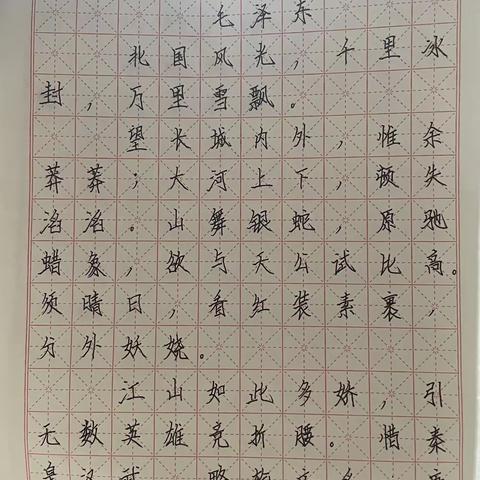 毛泽东
北国风光，千里冰
封，万里雪飘。
望长城内外，惟余
莽莽；大河上下，顿失
滔滔。山舞银蛇，原驰
蜡象，欲与天公试比高。
须晴日，看红装素裹，
分外妖娆。
江山如此多娇，引
无数英雄竞折腰。惜秦
皇汉武 略